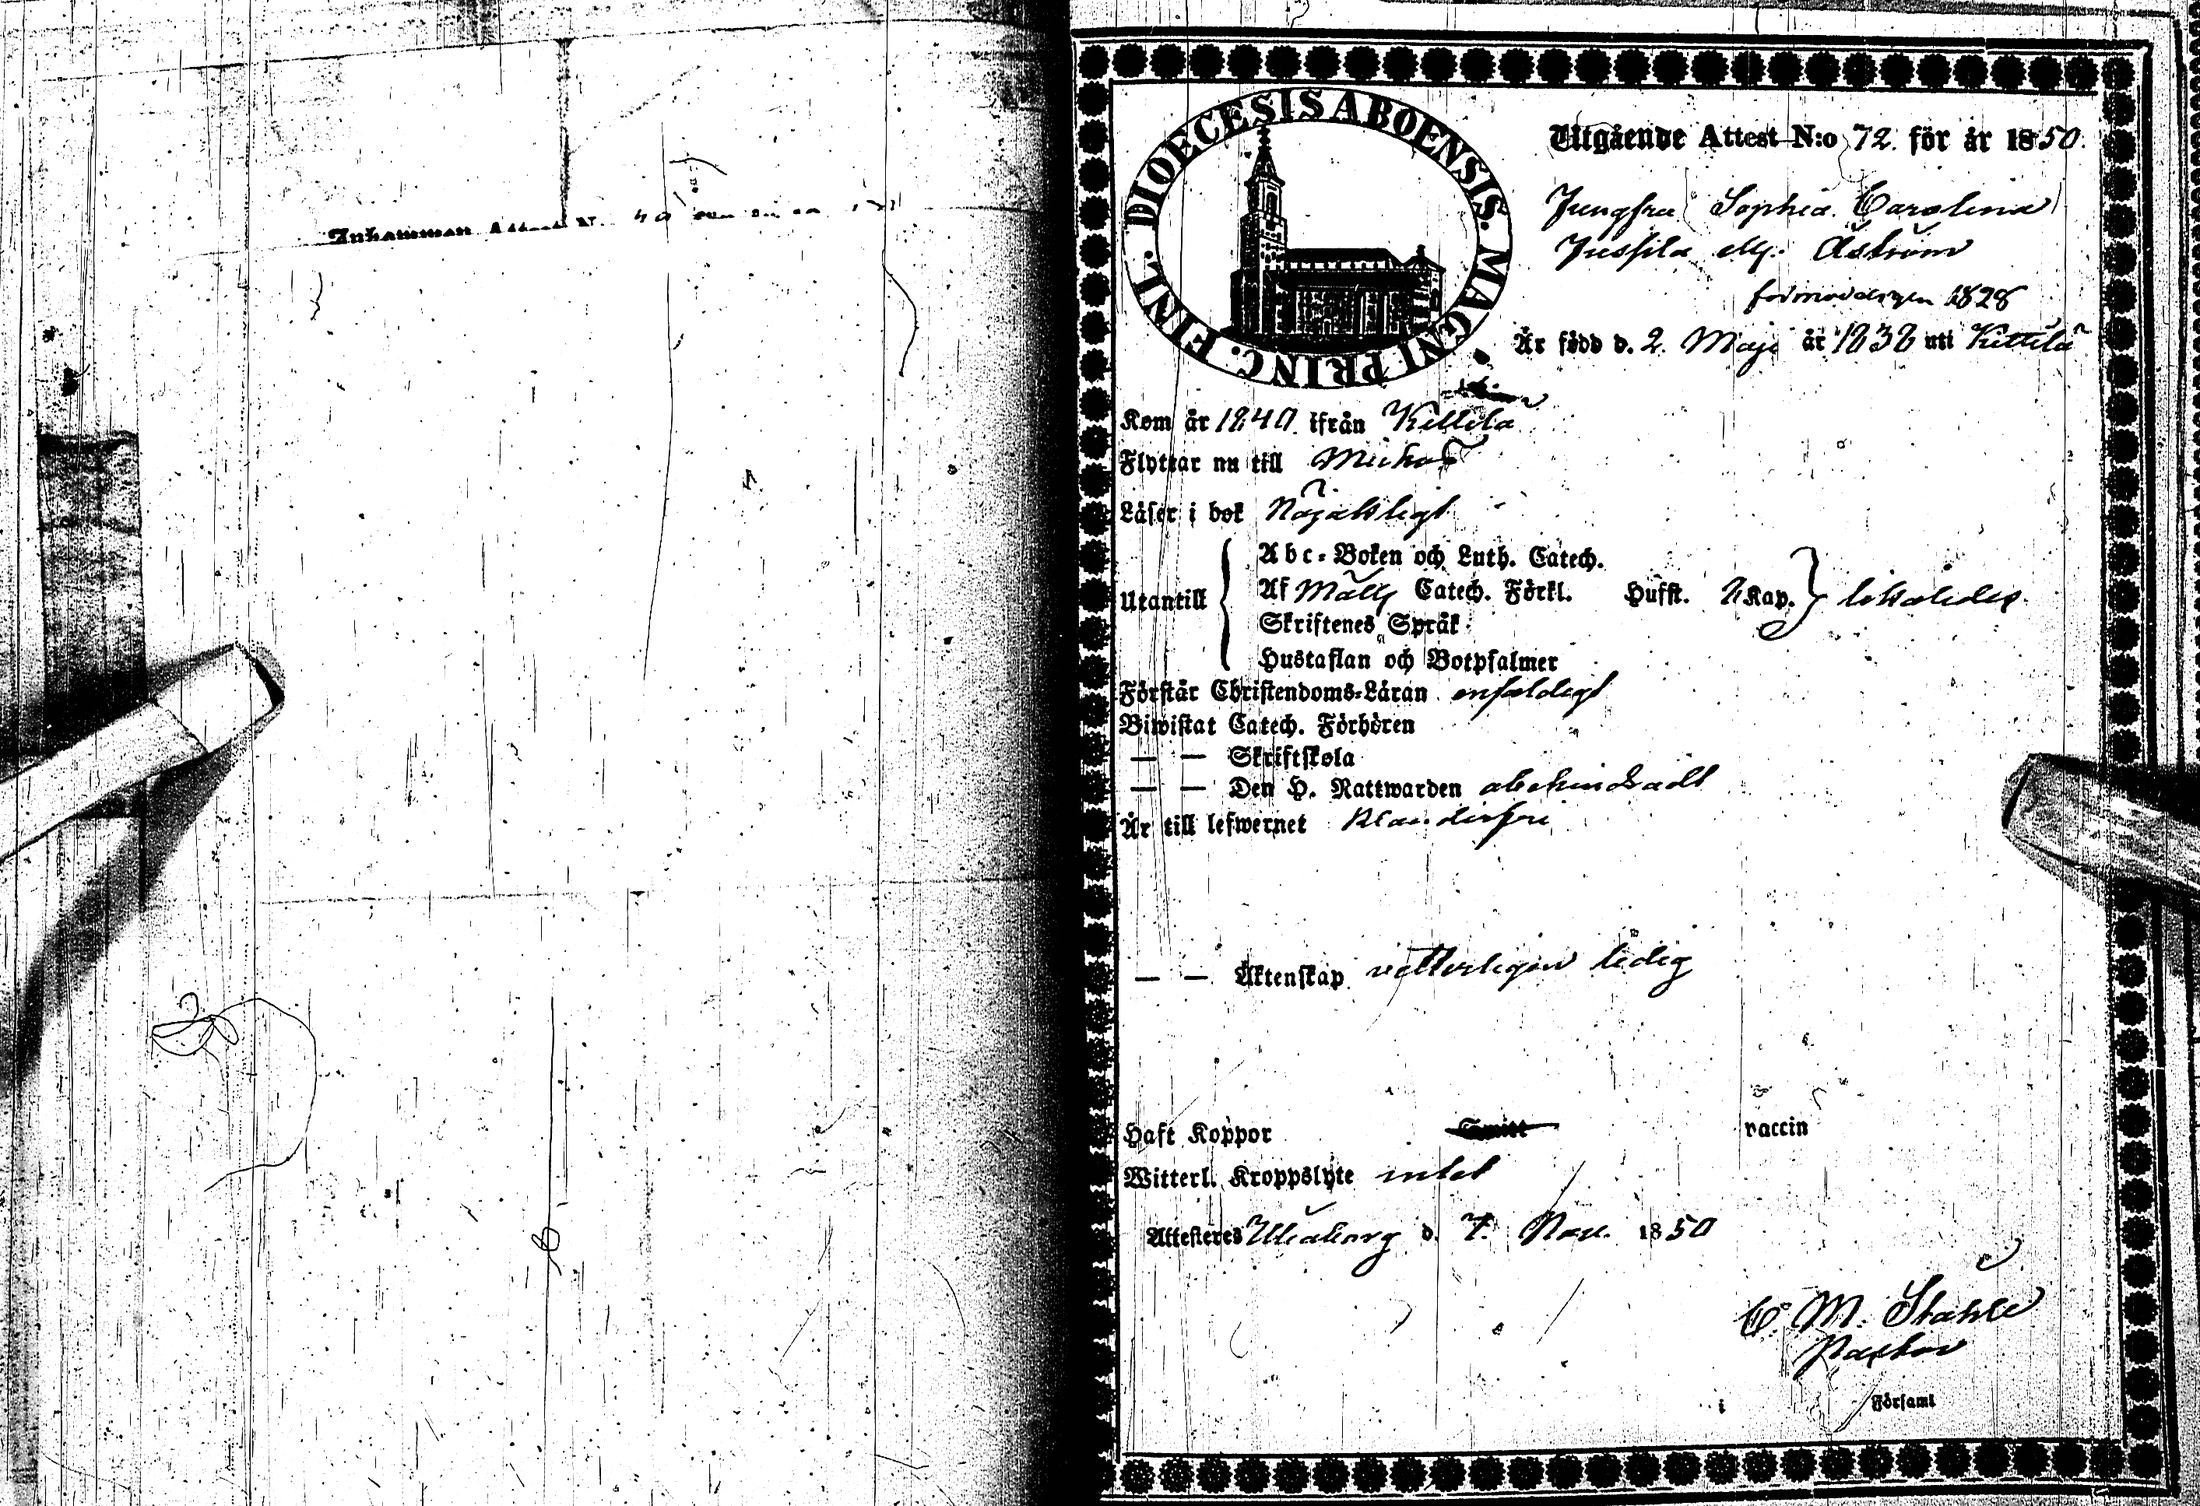 Inkommen Attest N:
DIOECESIS ABOENSIS. MAGNI PRINC. FINL.
Utgående Attest N:o 72. för år 1850.
Jungfru Sophia Carolina
Jussila ell. Åström
förmodligen 1828
Är född d. 2 Maji år 1838 uti Kittilä
Kom år 1840 ifrån Kittilä
Flyttar nu till Muhos
Läser i bok Nöjaktligt
Utantill
Abc-Boken och Luth. Catech.
Af Catech. Förkl. Hufst. Kap. likaledes
Skriftenes Språk
Hustaflan och Botpsalmer
Förstår Christendoms-Läran enfaldigt
Biwistat Catech. Förhören
— — Skriftskola
— — Den H. Nattwarden obehindradt
Är till lefwernet klanderfri
— — Äktenskap vetterligen ledig
Haft Koppor Smitt vaccin
Witterl. Kroppslyte intet
Attesteres Uleaborg d. 7. Nov. 1850
C. M. Stahle
Pastor
i Församl